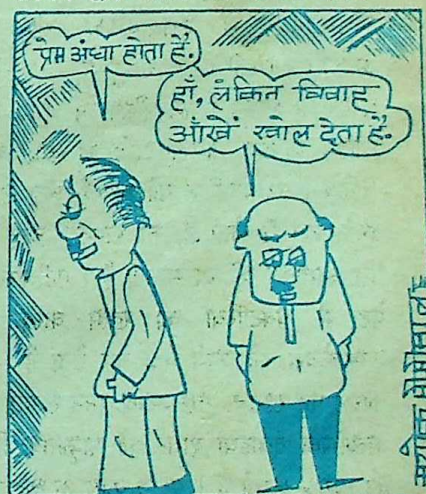 प्रेम अंधा होता है.
हाँ, लेकिन विवाह
आँखें खोल देता है.
अशोक